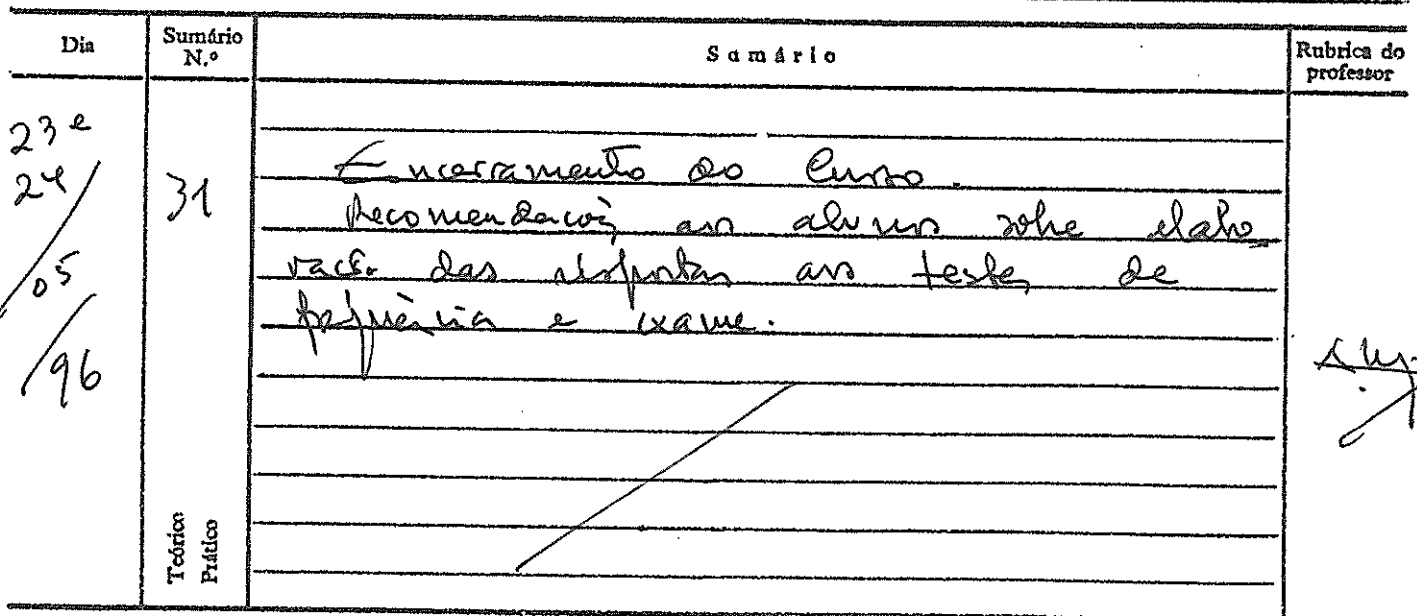 Dia
Sumário N.º
Sumário
Rubrica do professor
23 e 24/05/96
31
Encerramento do Curso.
Recomendações aos alunos sobre elabo-
ração das respostas aos testes de
frequência e exame.
Teórico
Prático